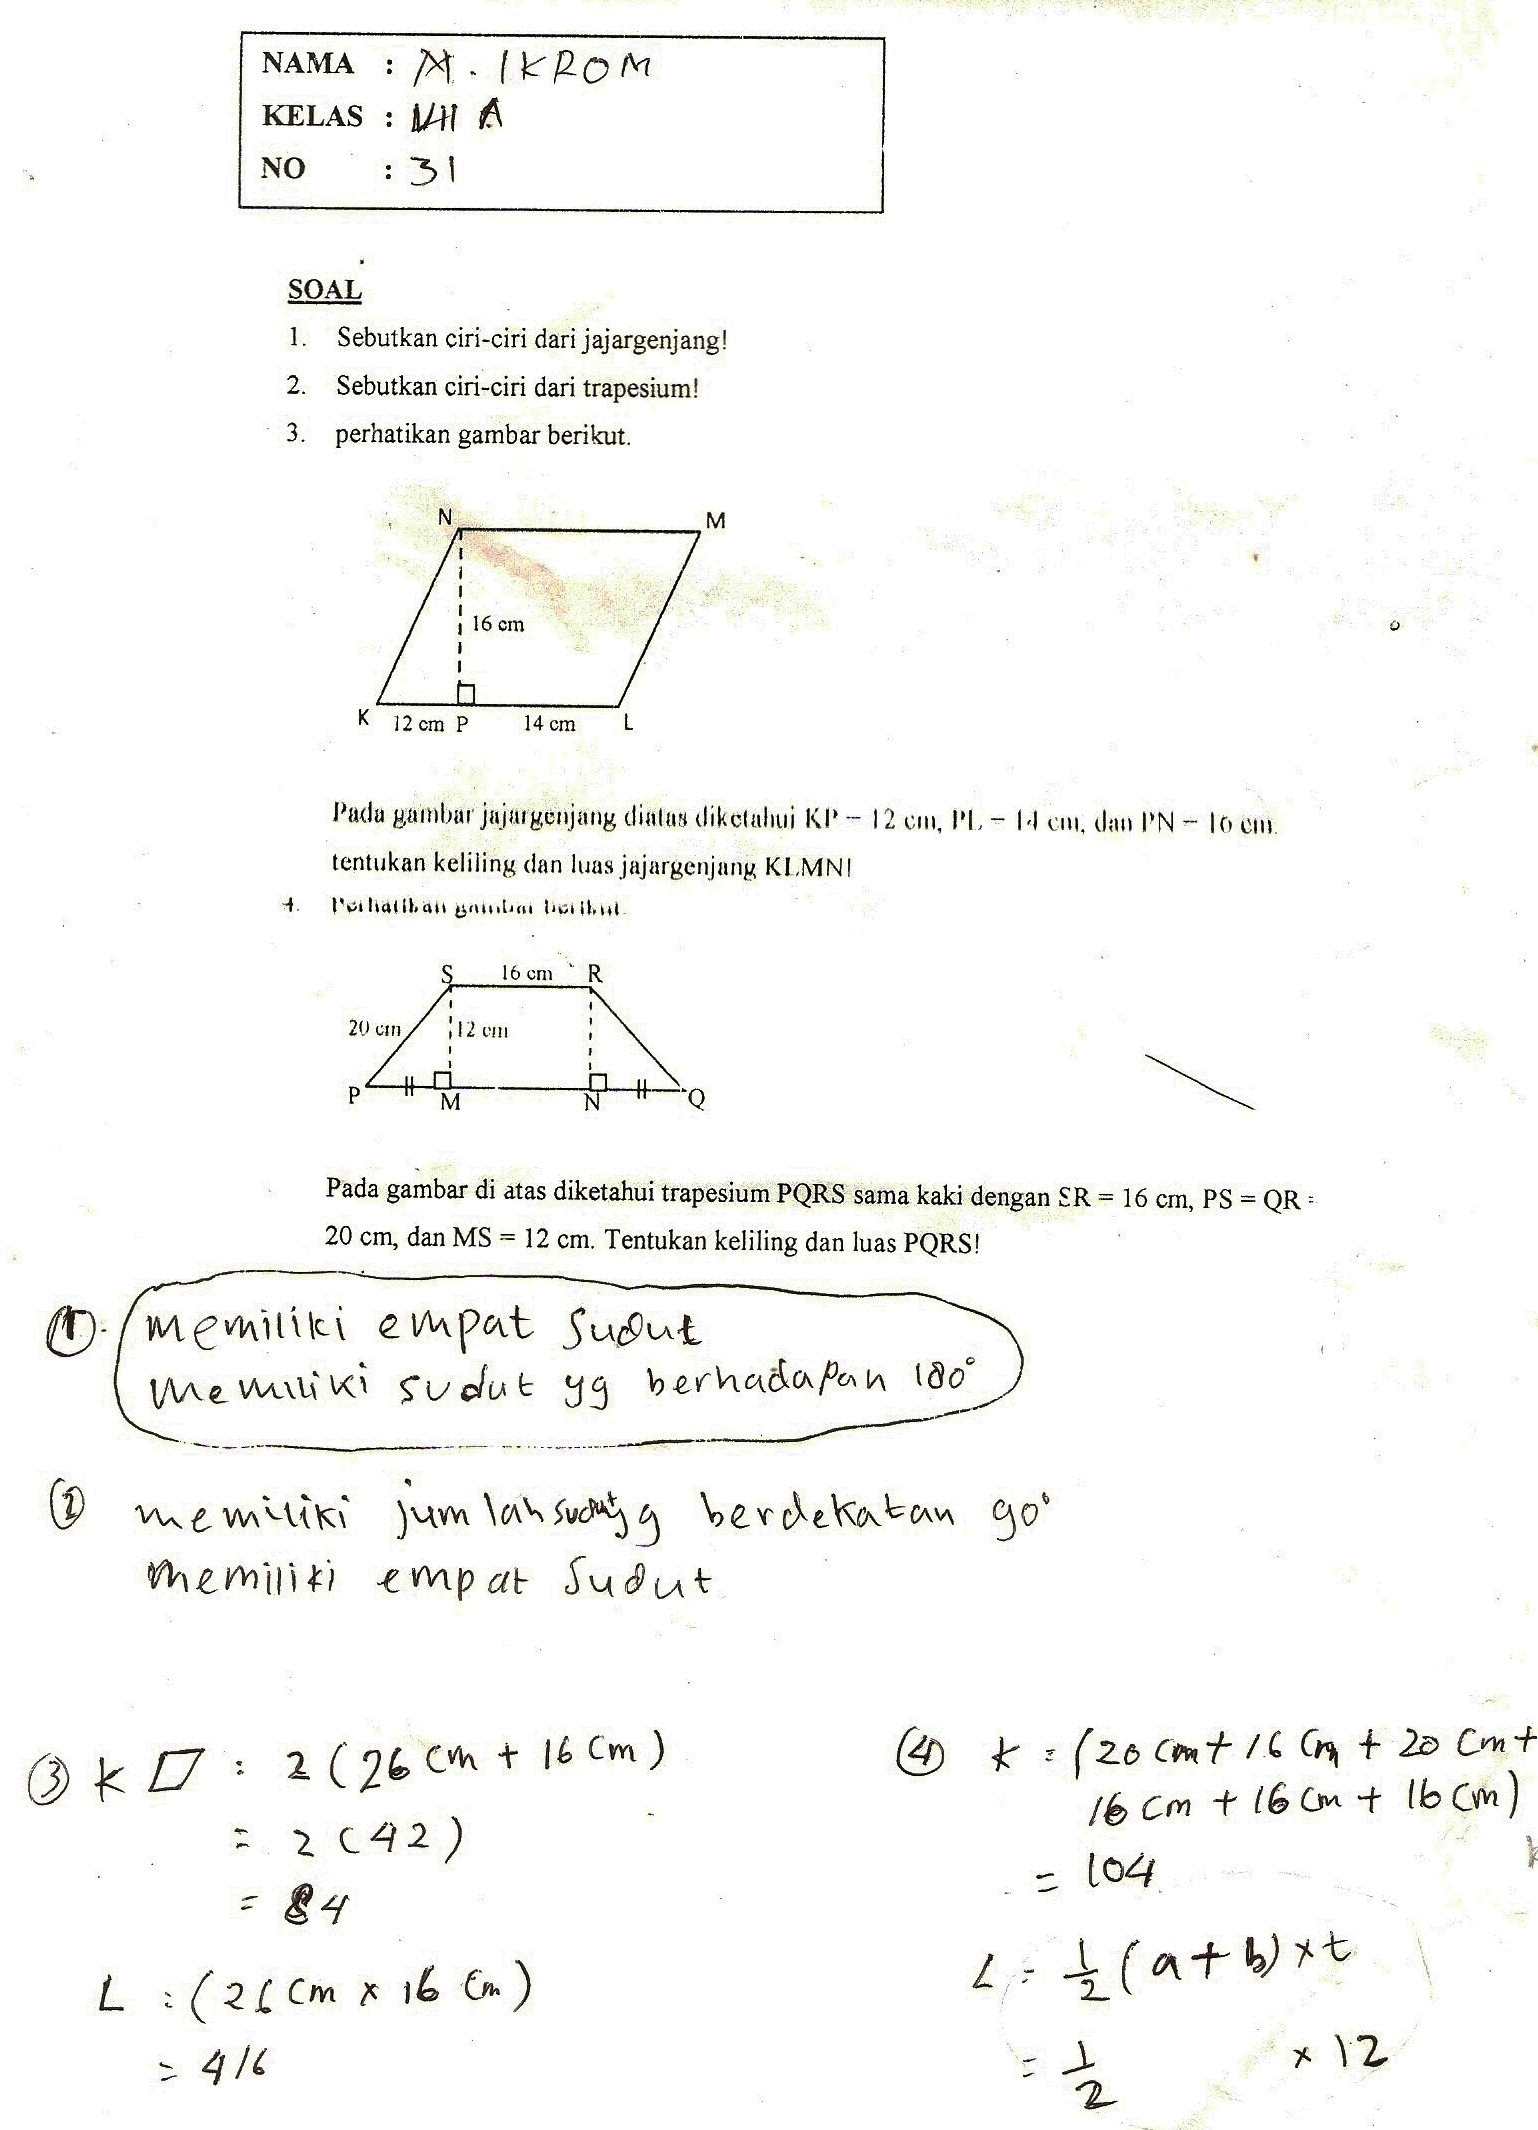 NAMA : M. IKROM
KELAS : VII A
NO : 31
SOAL
1. Sebutkan ciri-ciri dari jajargenjang!
2. Sebutkan ciri-ciri dari trapesium!
3. perhatikan gambar berikut.
N M
16 cm
K 12 cm P 14 cm L
Pada gambar jajargenjang diatas diketahui KP = 12 cm, PL = 14 cm, dan PN = 16 cm.
tentukan keliling dan luas jajargenjang KLMN!
4. Perhatikan gambar berikut.
S 16 cm R
20 cm 12 cm
P M N Q
Pada gambar di atas diketahui trapesium PQRS sama kaki dengan SR = 16 cm, PS = QR =
20 cm, dan MS = 12 cm. Tentukan keliling dan luas PQRS!
1. memiliki empat sudut
memiliki sudut yg berhadapan 180°
2 memiliki jumlah sudut yg berdekatan 90°
memiliki empat sudut
3 K ▱ : 2 (26 cm + 16 cm)
= 2 (42)
= 84
L : (26 cm x 16 cm)
= 416
4 K = (20 cm + 16 cm + 20 cm +
16 cm + 16 cm + 16 cm)
= 104
L = 1/2 (a + b) x t
= 1/2 x 12